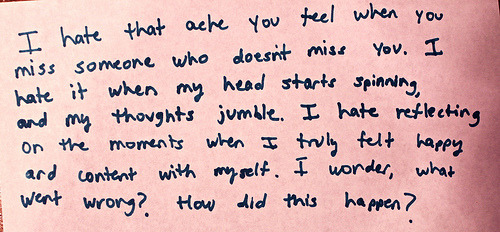 I hate that ache you feel when you
miss someone who doesn't miss you. I
hate it when my head starts spinning,
and my thoughts jumble. I hate reflecting
on the moments when I truly felt happy
and content with myself. I wonder, what
went wrong? How did this happen?